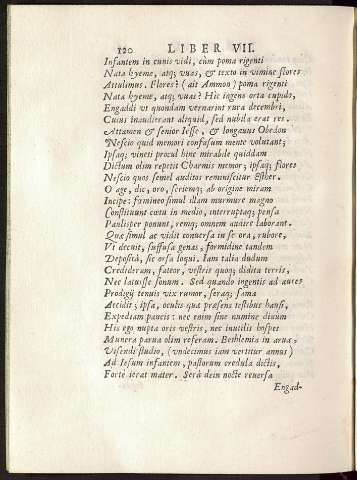 120 LIBER VII.
Infantem in cunis vidi, cùm poma rigenti
Nata hyeme, atq; vuas, & texto in vimine flores
Attulimus. Flores? (ait Ammon) poma rigenti
Nata hyeme, atq; vuas? Hic ingens orta cupido,
Engaddi vt quondam vernarint rura decembri,
Cuius inaudierant aliquid, sed nubila erat res.
Attamen & senior Iesse, & longæuus Obedon
Nescio quid memori confusum mente volutant;
Ipsaq; vineti procul hinc mirabile quiddam
Dictum olim repetit Charmis memor; ipsaq; flores
Nescio quos semel auditos reminiscitur Esther.
O age, dic, oro, seriemq; ab origine miram
Incipe: fœmineo simul illam murmure magno
Constituunt cœtu in medio, interruptaq; pensa
Paulisper ponunt, remq; omnem audire laborant.
Quæ simul ac vidit conuersa in se ora, rubore,
Vt decuit, suffusa genas, formidine tandem
Deposita, sic orsa loqui. Iam talia dudum
Credideram, fateor, vestris quoq; didita terris,
Nec latuisse sonum. Sed quando ingentis ad aures
Prodigij tenuis vix rumor, seraq; fama
Accidit; ipsa, oculis quæ præsens testibus hausi,
Expediam paucis: nec enim sine numine diuûm
His ego nupta oris vestris, nec inutilis hospes
Munera parua olim referam. Bethlemia in arua,
Visendi studio, (vndecimus iam vertitur annus)
Ad Iesum infantem, pastorum credula dictis,
Fortè ierat mater. Serà dein nocte reuersa
Engad-